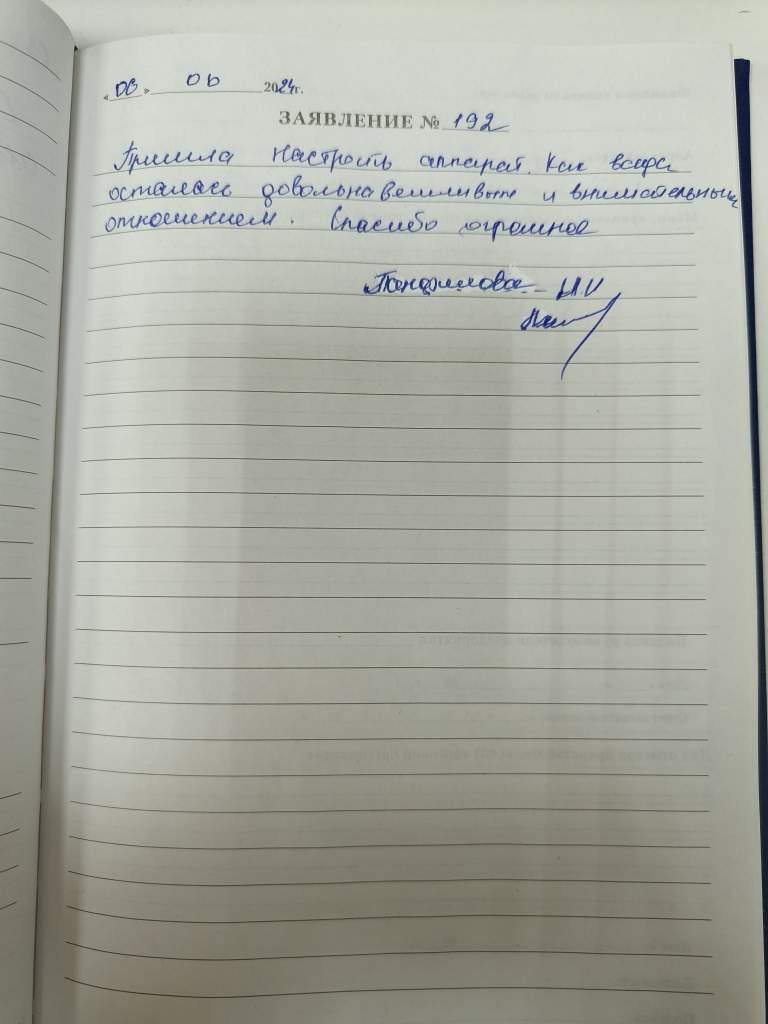 « 06 » 06 2024г.
ЗАЯВЛЕНИЕ № 192
Пришла настроить аппарат. Как всегда
осталась довольна вежливым и внимательным
отношением. Спасибо огромное